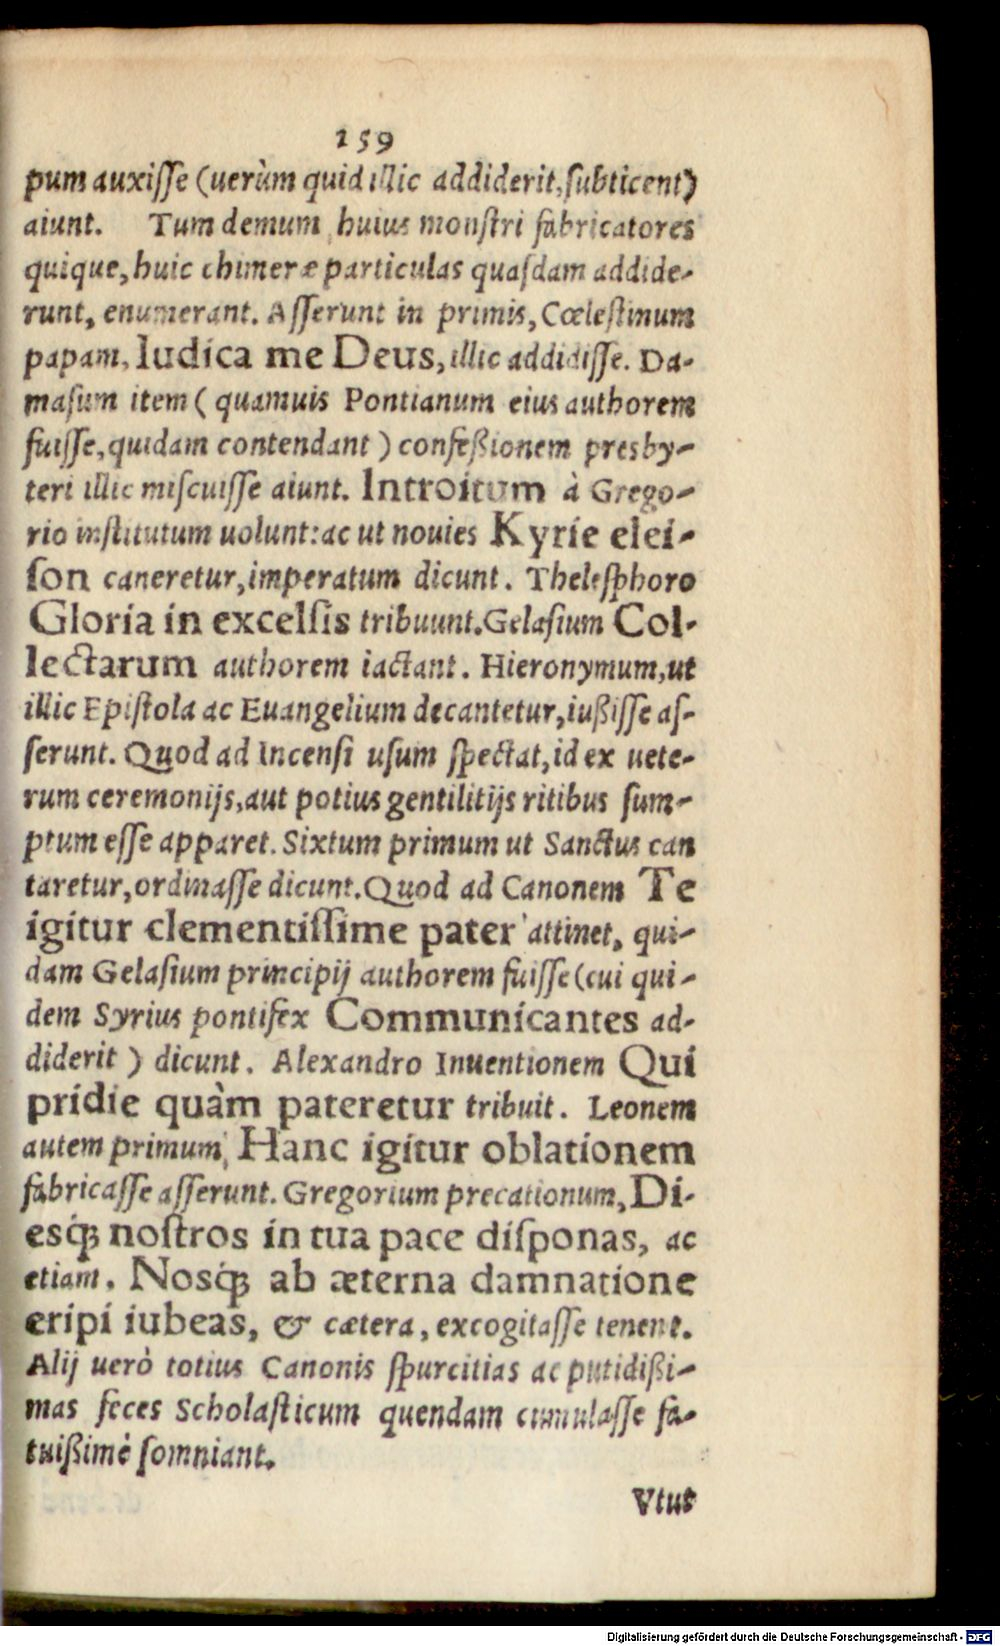 159
pum auxiſſe (uerùm quid illic addiderit, ſubticent)
aiunt. Tum demum huius monſtri fabricatores
quique, huic chimeræ particulas quaſdam addide-
runt, enumerant. Aſſerunt in primis, Cœleſtinum
papam, Iudica me Deus, illic addidiſſe. Da-
maſum item ( quamuis Pontianum eius authorem
fuiſſe, quidam contendant ) confeßionem presby-
teri illic miſcuiſſe aiunt. Introitum à Grego-
rio inſtitutum uolunt: ac ut nouies Kyrie elei-
ſon caneretur, imperatum dicunt. Theleſphoro
Gloria in excelſis tribuunt. Gelaſium Col-
lectarum authorem iactant. Hieronymum, ut
illic Epiſtola ac Euangelium decantetur, iußiſſe aſ-
ſerunt. Quod ad Incenſi uſum ſpectat, id ex uete-
rum ceremonijs, aut potius gentilitijs ritibus ſum-
ptum eſſe apparet. Sixtum primum ut Sanctus can
taretur, ordinaſſe dicunt. Quod ad Canonem Te
igitur clementiſſime pater attinet, qui-
dam Gelaſium principij authorem fuiſſe (cui qui-
dem Syrius pontifex Communicantes ad-
diderit ) dicunt. Alexandro Inuentionem Qui
pridie quàm pateretur tribuit. Leonem
autem primum, Hanc igitur oblationem
fabricaſſe aſſerunt. Gregorium precationum, Di-
esq́ noſtros in tua pace diſponas, ac
etiam. Nosq́ ab æterna damnatione
eripi iubeas, & cætera, excogitaſſe tenent.
Alij uerò totius Canonis ſpurcitias ac putidißi-
mas feces Scholaſticum quendam cumulaſſe fa-
tuißimè ſomniant.
Vtut
Digitalisierung gefördert durch die Deutsche Forschungsgemeinschaft - DFG